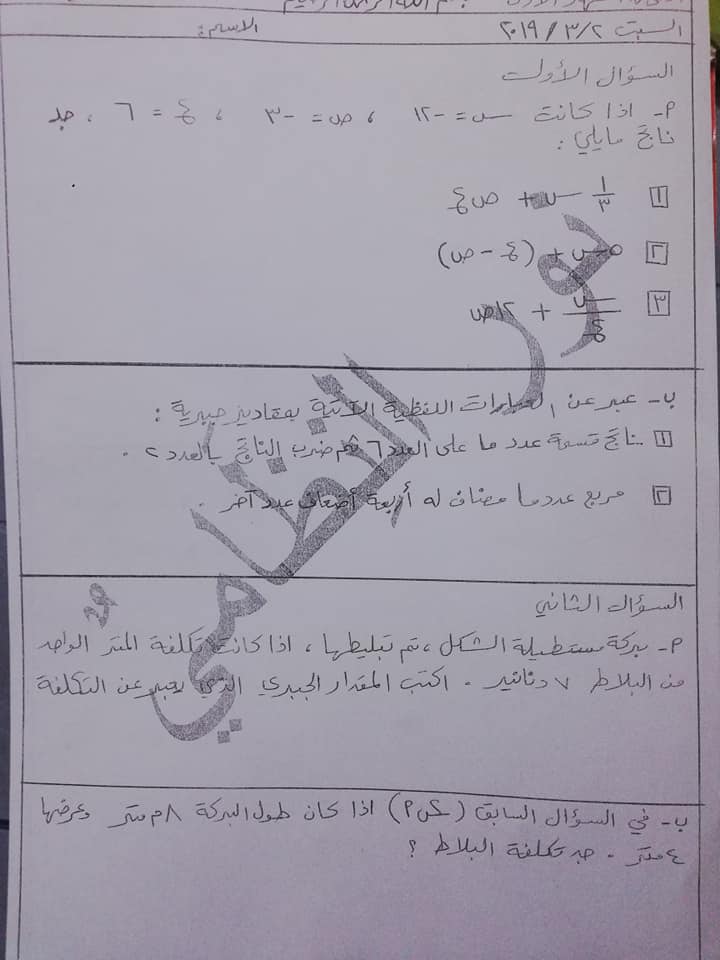 بسم الله الرحمن الرحيم
السبت ٢/٣/٢٠١٩ الاسم:
السؤال الأول
م- اذا كانت س = -١٢ ، ص = -٣ ، ع = ٦ ، جد
ناتج مايلي:
١ ١/٣ س + ص ع
٢ ٥س + (ع - ص)
٣ س/ع + ١٢ص
ب- عبر عن العبارات اللفظية الآتية بمقادير جبرية:
١ ناتج قسمة عدد ما على العدد ٦ ثم ضرب الناتج بالعدد ٢ .
٢ مربع عدد ما مضاف له أربعة أضعاف عدد آخر .
السؤال الثاني
م- بركة مستطيلة الشكل ، تم تبليطها ، اذا كانت تكلفة المتر الواحد
من البلاط ٧ دنانير . اكتب المقدار الجبري الذي يعبر عن التكلفة
ب- في السؤال السابق (س٢ م) اذا كان طول البركة ٨م متر وعرضها
٤ متر . جد تكلفة البلاط ؟
نور النظامي